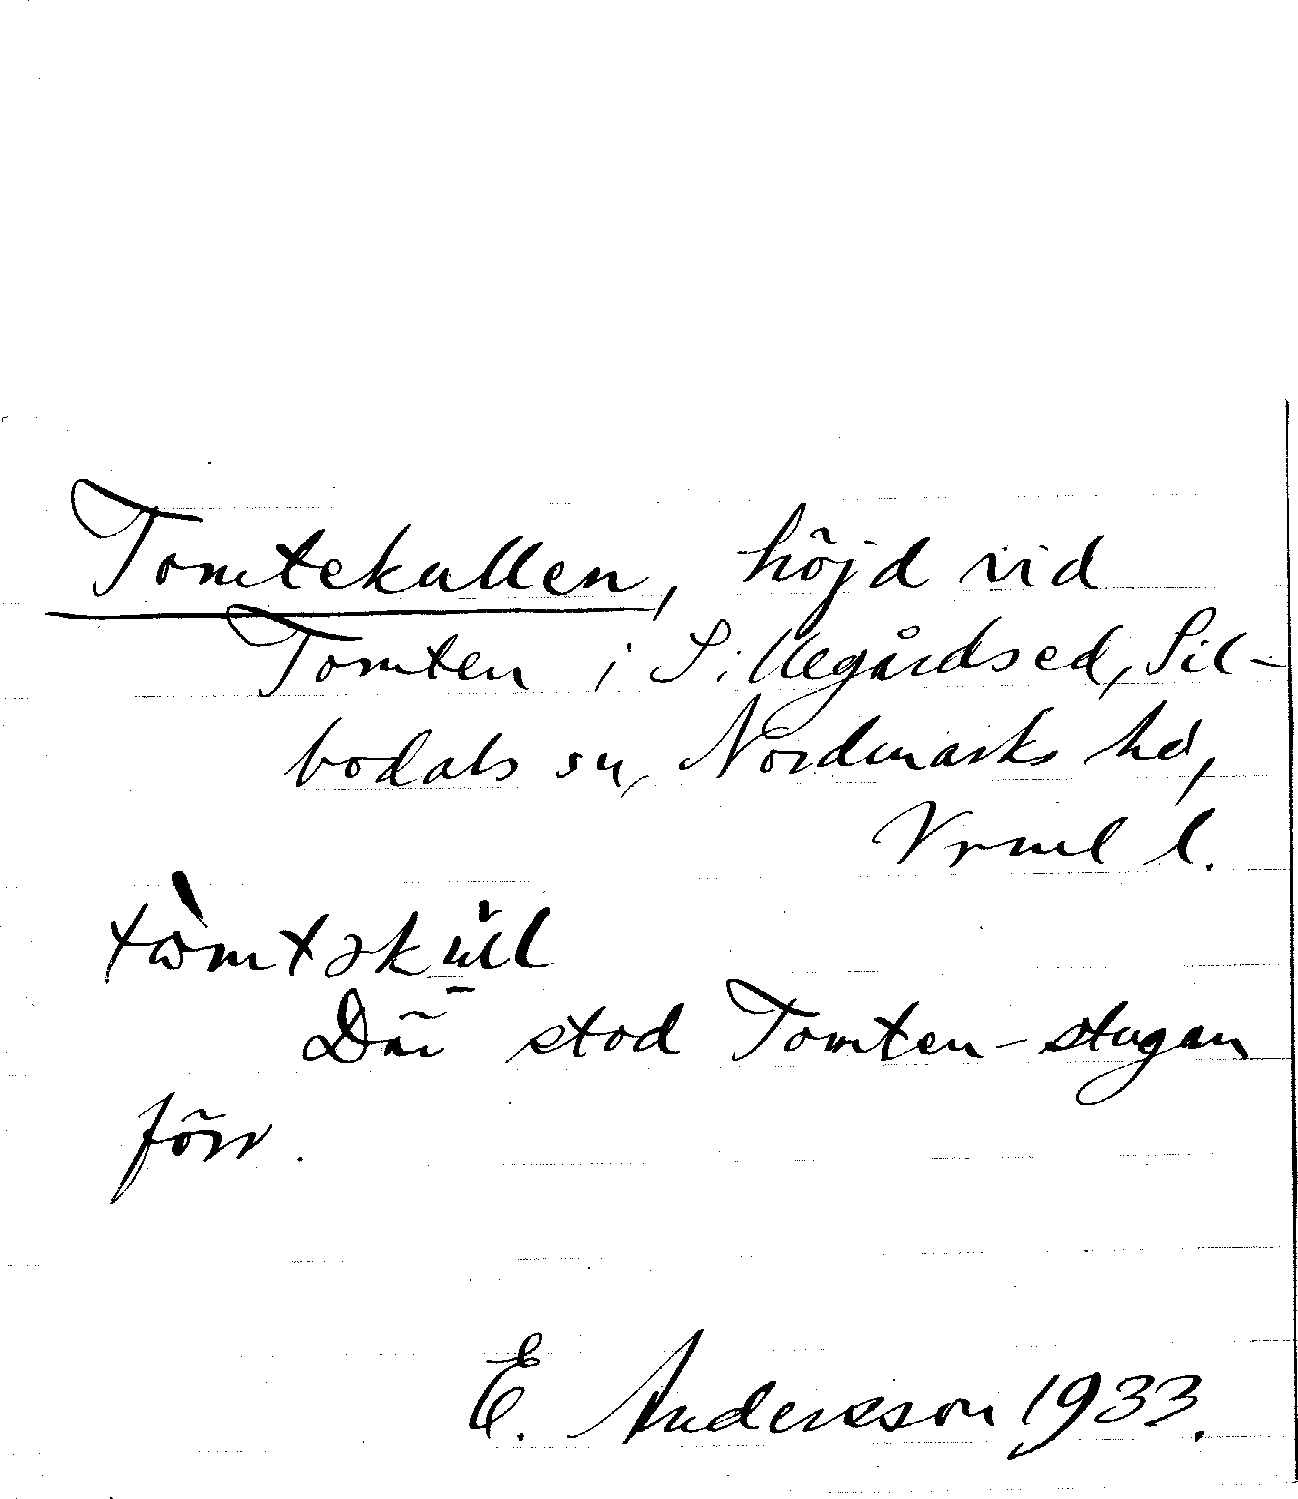 Tomtekullen, höjd vid
Tomten i Sillegårdsed, Sil-
bodals sn, Nordmarks hd,
Vrml l.
Där stod Tomten-stugan
förr.
E. Andersson 1933.